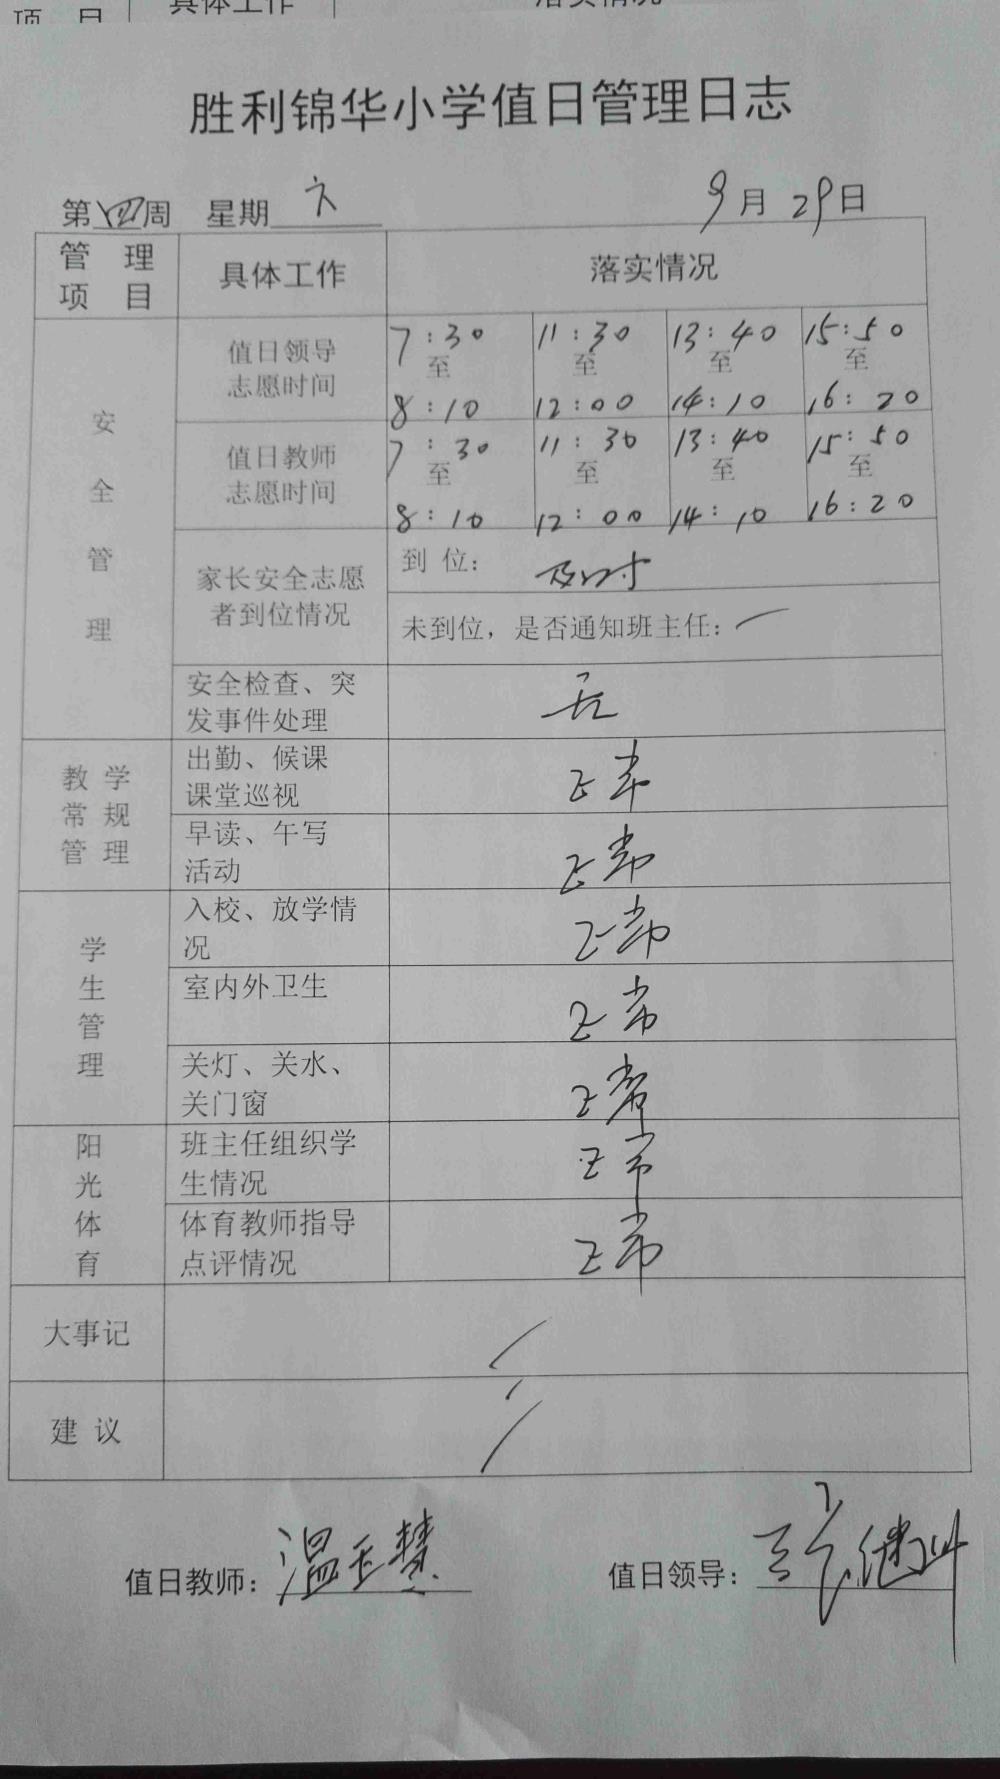 项 目 具体工作 落实情况
胜利锦华小学值日管理日志
第四周 星期六 9月29日
管 理 项 目 具体工作 落实情况
安全管理
值日领导
志愿时间
7:30 至 8:10 11:30 至 12:00 13:40 至 14:10 15:50 至 16:20
值日教师
志愿时间
7:30 至 8:10 11:30 至 12:00 13:40 至 14:10 15:50 至 16:20
家长安全志愿
者到位情况
到 位: 及时
未到位，是否通知班主任:
安全检查、突
发事件处理
无
教 学
常 规
管 理
出勤、候课
课堂巡视
正常
早读、午写
活动
正常
学生管理
入校、放学情
况
正常
室内外卫生
正常
关灯、关水、
关门窗
正常
阳光体育
班主任组织学
生情况
正常
体育教师指导
点评情况
正常
大事记
建 议
值日教师: 温玉慧 值日领导: